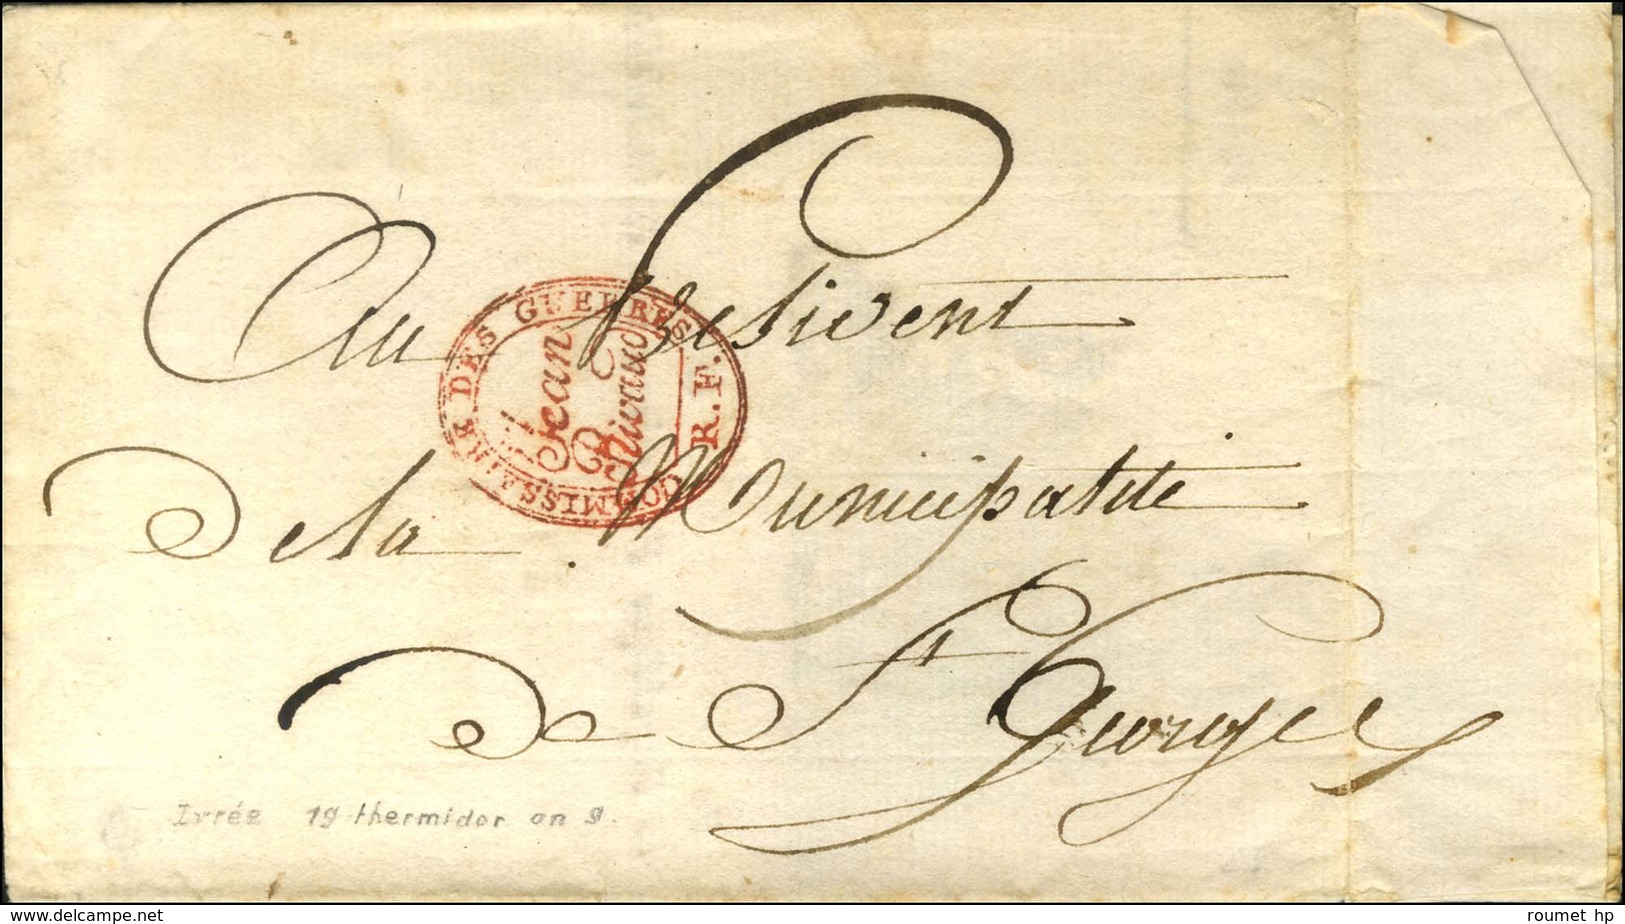 Au President
COMMISSAIRE DES GUERRES. R.F.
Jean
Rivaud
De la Municipalité
De St Georges
Ivrée 19 thermidor an 9.
www.delcampe.net
roumet hp